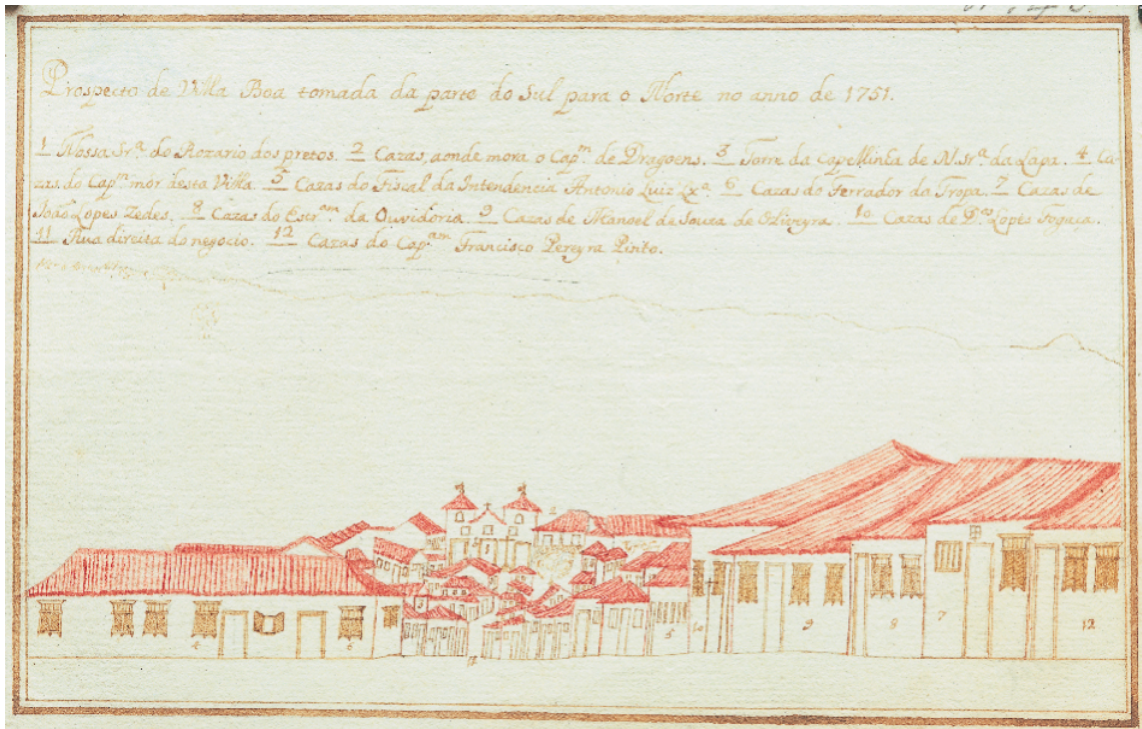 Prospecto de Villa Boa tomada da parte do Sul para o Norte no anno de 1751.
1 Nossa Sr.ª do Rozario dos pretos. 2 Cazas, aonde mora o Cap.ᵐ de Dragoens. 3 Torre da Capellinha de N. Sr.ª da Lapa. 4 Ca-
zas do Cap.ᵐ mór desta Villa. 5 Cazas do Fiscal da Intendencia Antonio Luiz Lx.ª 6 Cazas do Ferrador da Tropa. 7 Cazas de
João Lopes Zedes. 8 Cazas do Escr.ᵃᵐ da Ouvidoria. 9 Cazas de Manoel de Souza de Oliveyra. 10 Cazas de D.ᵒˢ Lopes Fogaça.
11 Rua direita do negocio. 12 Cazas do Cap.ᵃᵐ Francisco Pereyra Pinto.
2
4
6
5
10
9
8
7
12